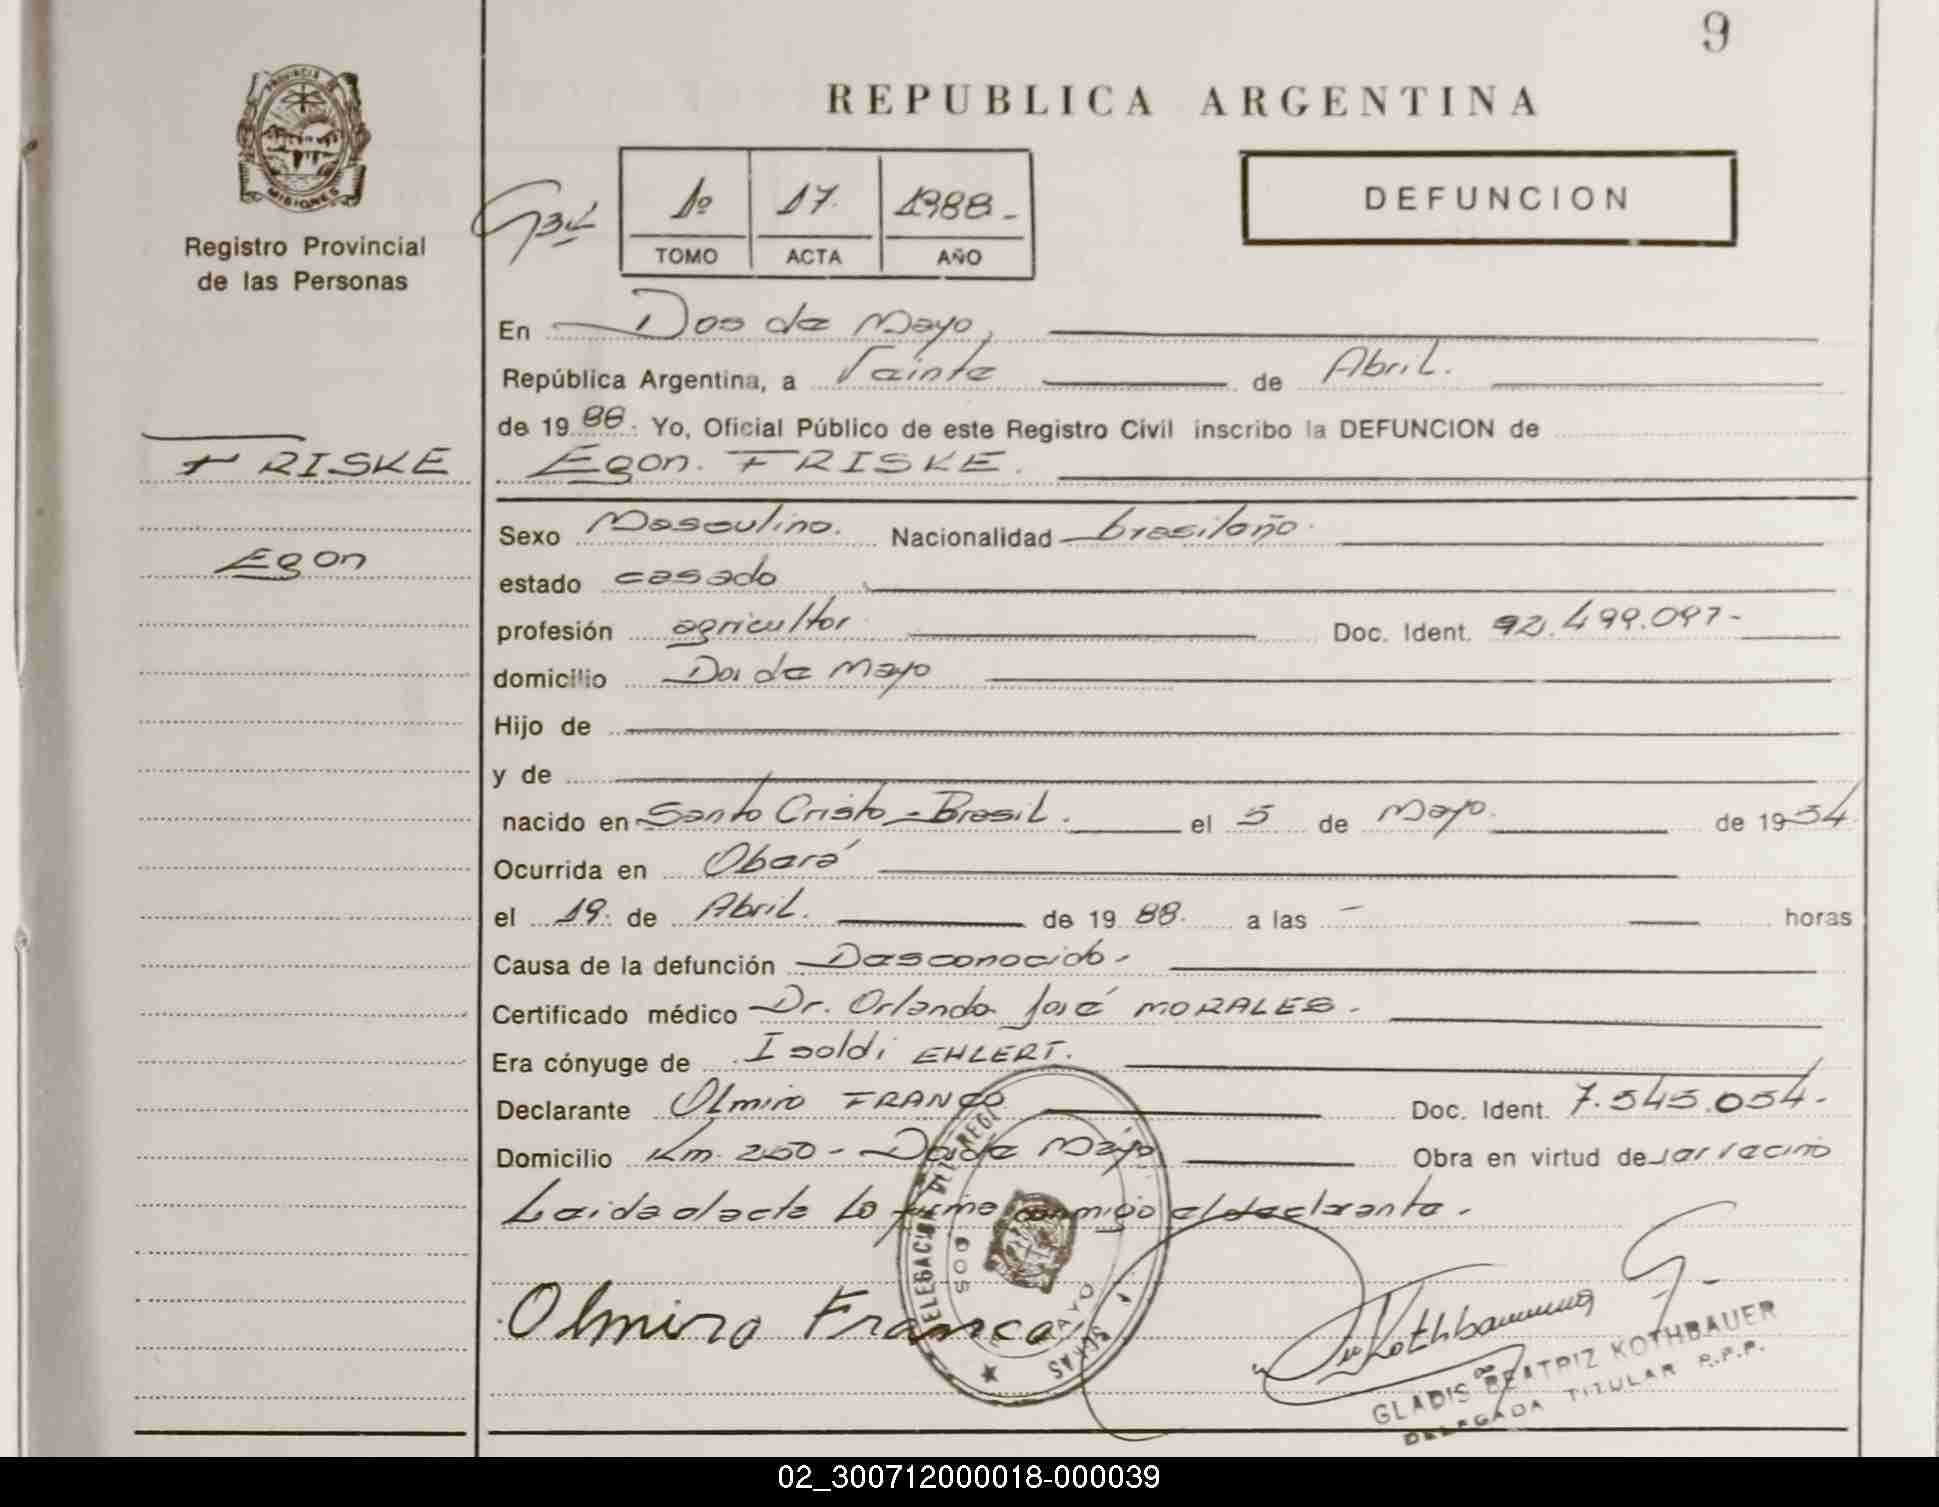 9
REPUBLICA ARGENTINA
PROVINCIA DE
MISIONES
Registro Provincial
de las Personas
1º 17. 1988.-
TOMO ACTA AÑO
DEFUNCION
En Dos de Mayo,
República Argentina, a Veinte de Abril.
de 1988. Yo, Oficial Público de este Registro Civil inscribo la DEFUNCION de
FRISKE
Egon. FRISKE.
Egon
Sexo Masculino. Nacionalidad brasileño.
estado casado
profesión agricultor Doc. Ident. 92.499.097-
domicilio Dos de Mayo
Hijo de
y de
nacido en Santo Cristo - Brasil. el 5 de Mayo. de 1934
Ocurrida en Oberá
el 19. de Abril. de 1988. a las - horas
Causa de la defunción Desconocido.-
Certificado médico Dr. Orlando José MORALES.
Era cónyuge de Isoldi EHLERT.
Declarante Olmiro FRANCO Doc. Ident. 7.545.054.-
Domicilio Km. 250 - Dos de Mayo Obra en virtud de ser vecino
Leida el acta la firma conmigo el declarante.
Olmiro Franco
Kothbauer
GLADIS BEATRIZ KOTHBAUER
DELEGADA TITULAR R.P.P.
02_300712000018-000039